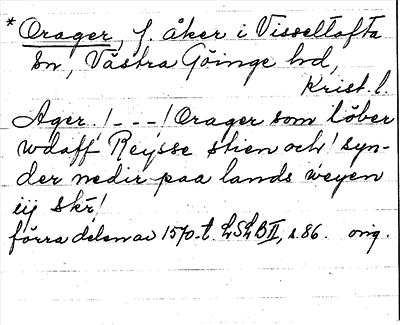 * Orager, f. åker i Visseltofta
sn, Västra Göinge hd,
Krist. l.
Ager /---/ Orager som löber
wdaff Reysse stien och syn-
der nedir paa lands weyen
iij skr/
förra delen av 1570-t. LSLB II, s. 86. orig.